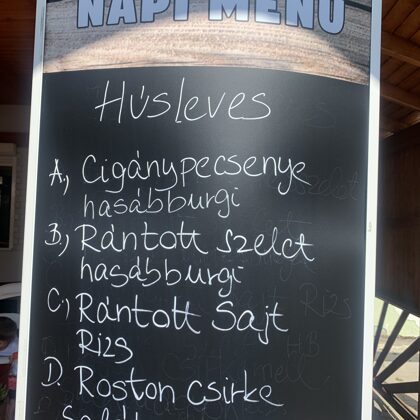 NAPI MENÜ
Húsleves
A.) Cigánypecsenye
hasábburgi
B.) Rántott szelet
hasábburgi
C.) Rántott Sajt
Rizs
D. Roston csirke